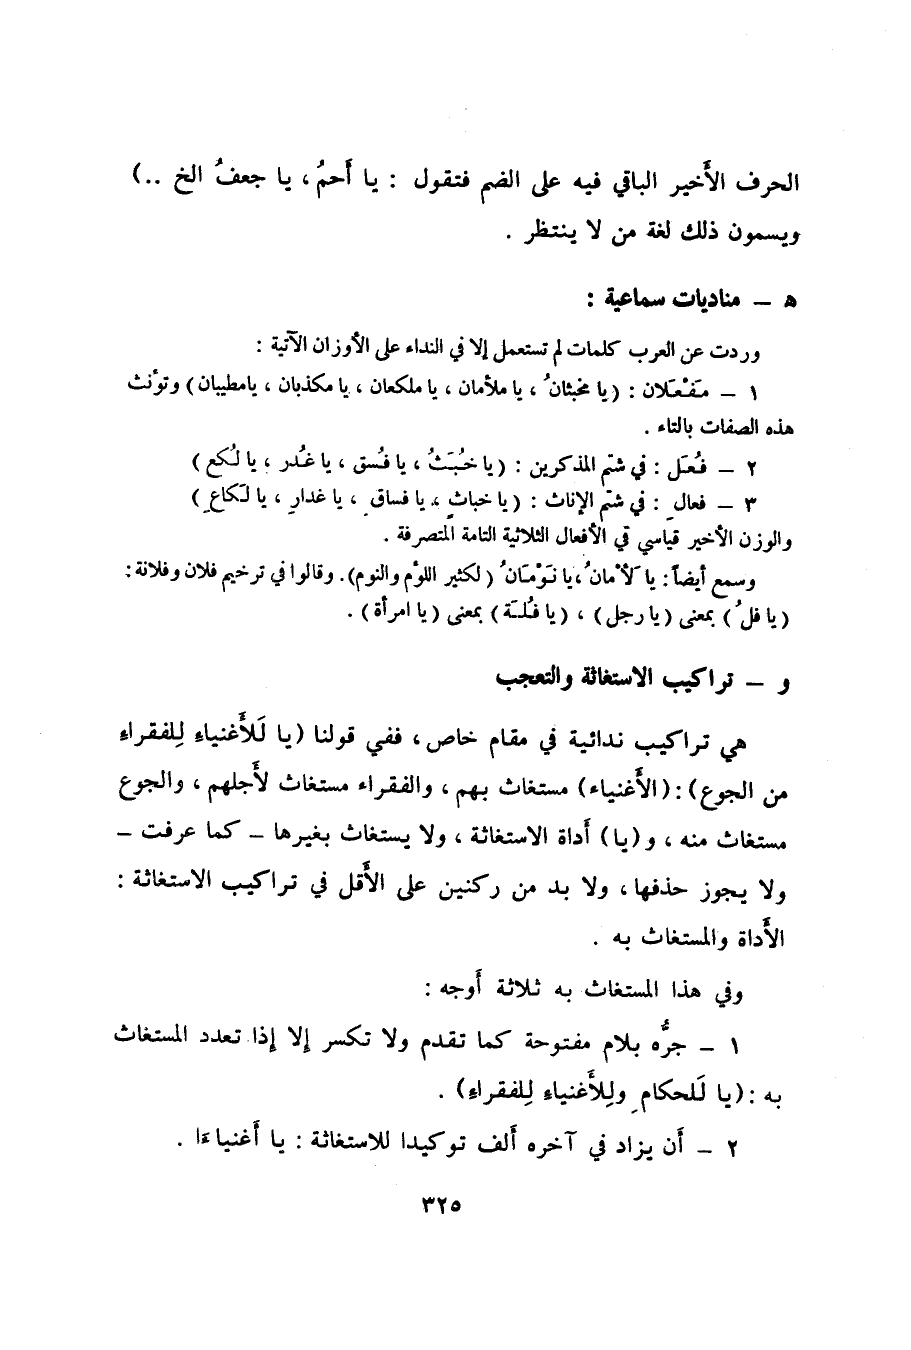 الحرف الأَخير الباقي فيه على الضم فتقول : يا أَحمُ ، يا جعفُ الخ ..)
ويسمون ذلك لغة من لا ينتظر .
ﻫ – مناديات سماعية :
وردت عن العرب كلمات لم تستعمل إلا في النداء على الأوزان الآتية :
١ – مَفْعَلان : (يا مخبثانُ ، يا ملأمان ، يا ملكعان ، يا مكذبان ، يامطيبان) وتؤنث
هذه الصفات بالتاء .
٢ – فُعَل : في شتم المذكرين : (يا خُبَثُ ، يا فُسق ، يا غُدر ، يا لُكع )
٣ – فعالِ : في شتم الإناث : (يا خباثِ ، يا فساقِ ، يا غدارِ ، يا لَكاعِ )
والوزن الأخير قياسي في الأفعال الثلاثية التامة المتصرفة .
وسمع أيضاً : يا لأْمانُ ، يا نَوْمَانُ ( لكثير اللؤم والنوم). وقالوا في ترخيم فلان وفلانة :
( يا فلُ ) بمعنى ( يا رجل ) ، ( يا فُلَة ) بمعنى ( يا امرأة ) .
و – تراكيب الاستغاثة والتعجب
هي تراكيب ندائية في مقام خاص ، ففي قولنا (يا لَلأَغنياءِ لِلفقراءِ
من الجوع) : (الأَغنياء) مستغاث بهم ، والفقراء مستغاث لأَجلهم ، والجوع
مستغاث منه ، و (يا) أَداة الاستغاثة ، ولا يستغاث بغيرها – كما عرفت –
ولا يجوز حذفها ، ولا بد من ركنين على الأَقل في تراكيب الاستغاثة :
الأَداة والمستغاث به .
وفي هذا المستغاث به ثلاثة أَوجه :
١ – جرُّه بلام مفتوحة كما تقدم ولا تكسر إلا إذا تعدد المستغاث
به : (يا لَلحكامِ ولِلأَغنياءِ لِلفقراءِ) .
٢ – أَن يزاد في آخره أَلف توكيدا للاستغاثة : يا أَغنياءَا .
٣٢٥